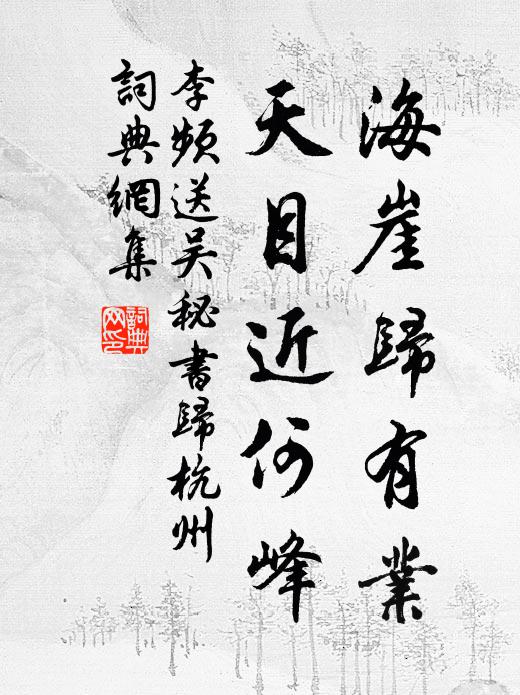 海崖歸有業
天目近何峰
李頻送吳秘書歸杭州
詞典網集
詞典網印